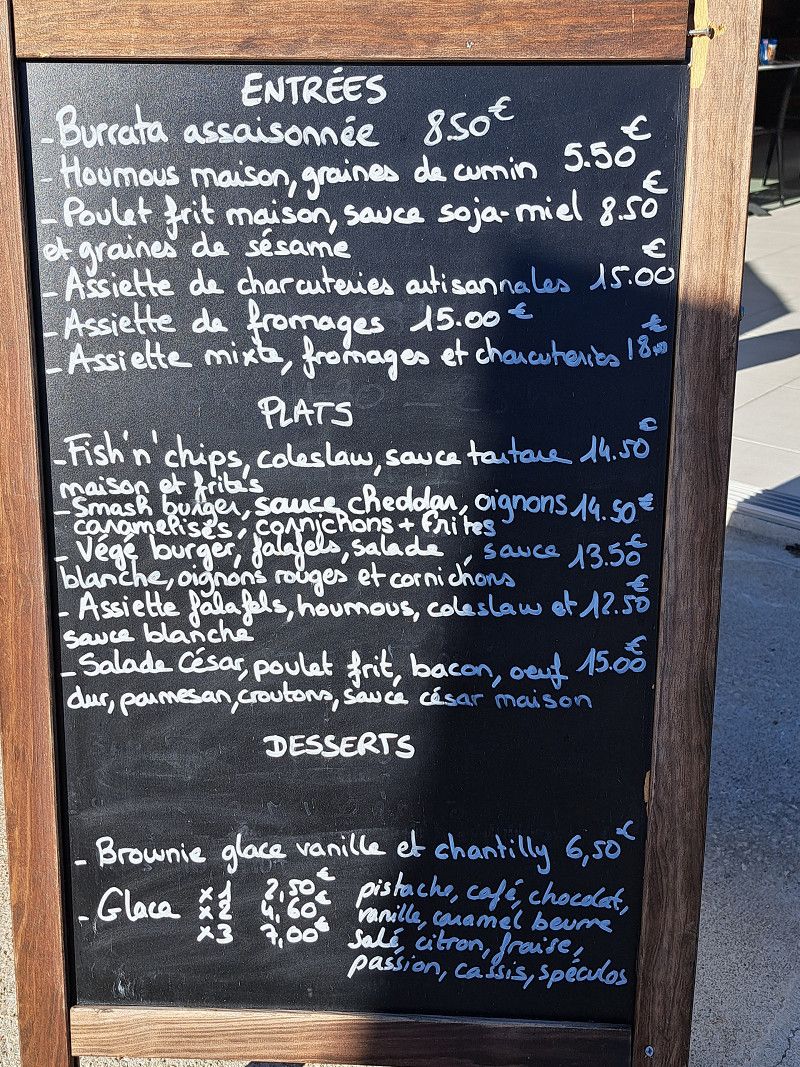 ENTRÉES
- Burrata assaisonnée 8.50€
- Houmous maison, graines de cumin 5.50€
- Poulet frit maison, sauce soja-miel 8.50€
et graines de sésame
- Assiette de charcuteries artisannales 15.00€
- Assiette de fromages 15.00€
- Assiette mixte, fromages et charcuteries 18.00€
PLATS
- Fish'n'chips, coleslaw, sauce tartare 14.50€
maison et frites
- Smash burger, sauce cheddar, oignons 14.50€
caramélisés, cornichons + frites
- Végé burger, falafels, salade, sauce 13.50€
blanche, oignons rouges et cornichons
- Assiette falafels, houmous, coleslaw et 12.50€
sauce blanche
- Salade César, poulet frit, bacon, oeuf 15.00€
dur, parmesan, croutons, sauce césar maison
DESSERTS
- Brownie glace vanille et chantilly 6,50€
- Glace x1 2,50€ pistache, café, chocolat,
x2 4,60€ vanille, caramel beurre
x3 7,00€ salé, citron, fraise,
passion, cassis, spéculos